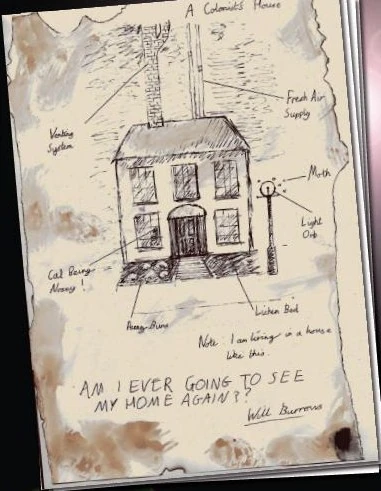 A Colonist's House
Venting
System
Fresh Air
Supply
Moth
Light
Orb
Cal Being
Nosey!
Lichen Bed
Note: I am living in a house
like this.
AM I EVER GOING TO SEE
MY HOME AGAIN??
Will Burrows